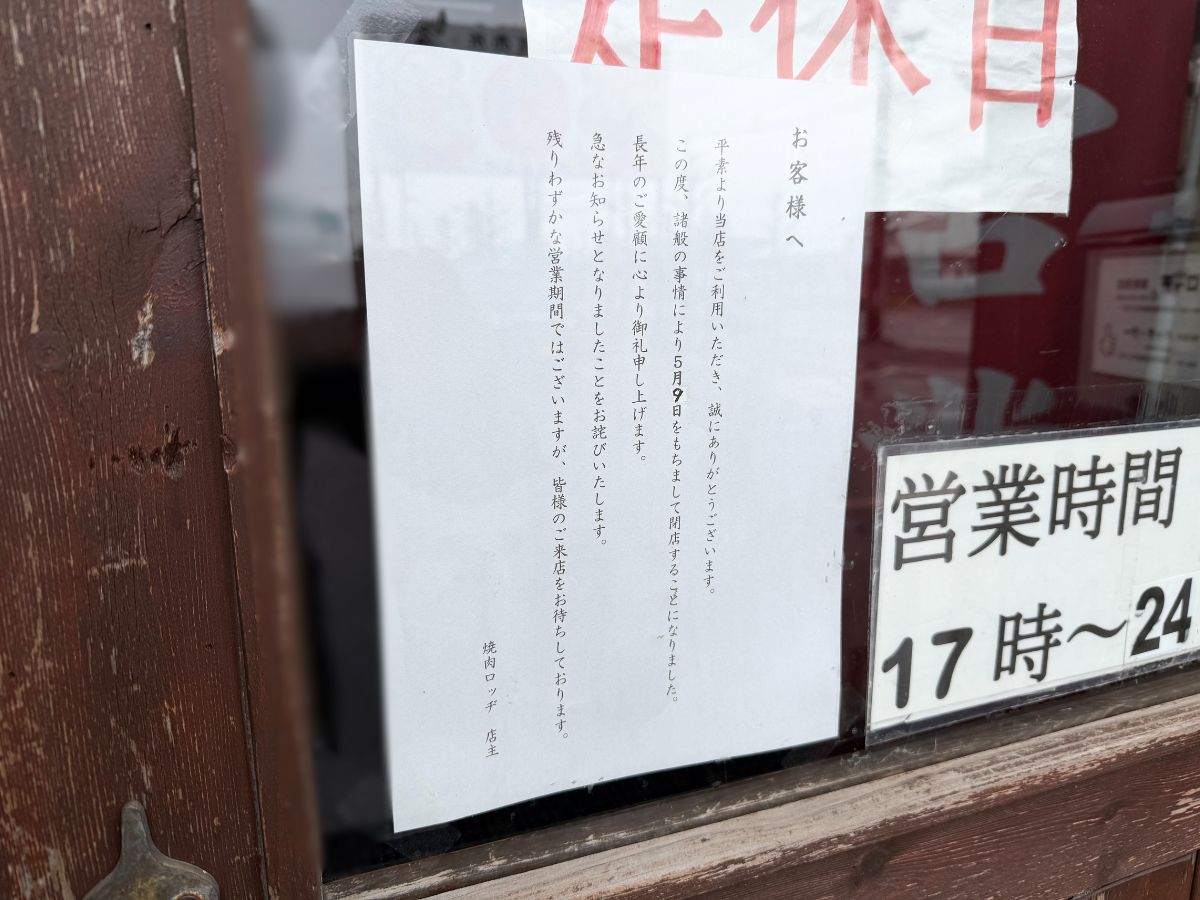 定休日
お客様へ
平素より当店をご利用いただき、誠にありがとうございます。
この度、諸般の事情により5月9日をもちまして閉店することになりました。
長年のご愛顧に心より御礼申し上げます。
急なお知らせとなりましたことをお詫びいたします。
残りわずかな営業期間ではございますが、皆様のご来店をお待ちしております。
焼肉ロッヂ 店主
営業時間
17時〜24